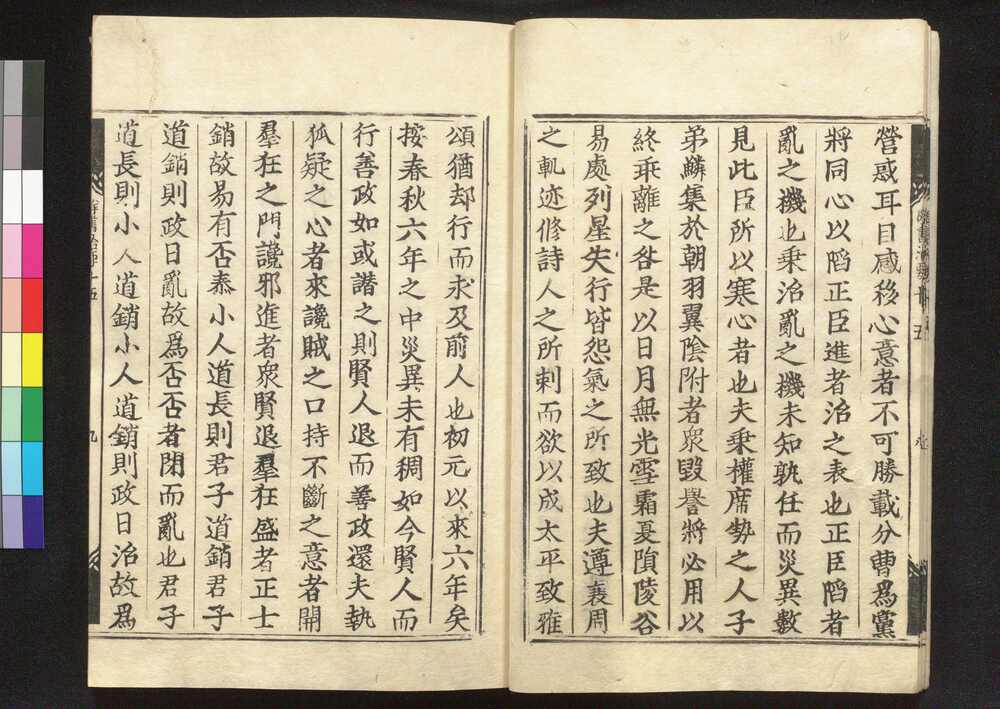 營惑耳目感移心意者不可勝載分曹爲黨
將同心以陷正臣進者治之表也正臣陷者
亂之機也乗治亂之機未知孰任而災異數
見此臣所以寒心者也夫乗權席勢之人子
弟鱗集於朝羽翼陰附者衆毀譽將必用以
終乖離之咎是以日月無光雪霜夏隕陵谷
易處列星失行皆怨氣之所致也夫遵衰周
之軌迹修詩人之所刺而欲以成太平致雅
頌猶却行而求及前人也初元以來六年矣
按春秋六年之中災異未有稠如今賢人而
行善政如或譖之則賢人退而善政還夫執
狐疑之心者來讒賊之口持不斷之意者開
羣枉之門讒邪進者衆賢退羣枉盛者正士
銷故易有否泰小人道長則君子道銷君子
道銷則政日亂故爲否否者閉而亂也君子
道長則小人道銷小人道銷則政日治故爲
九